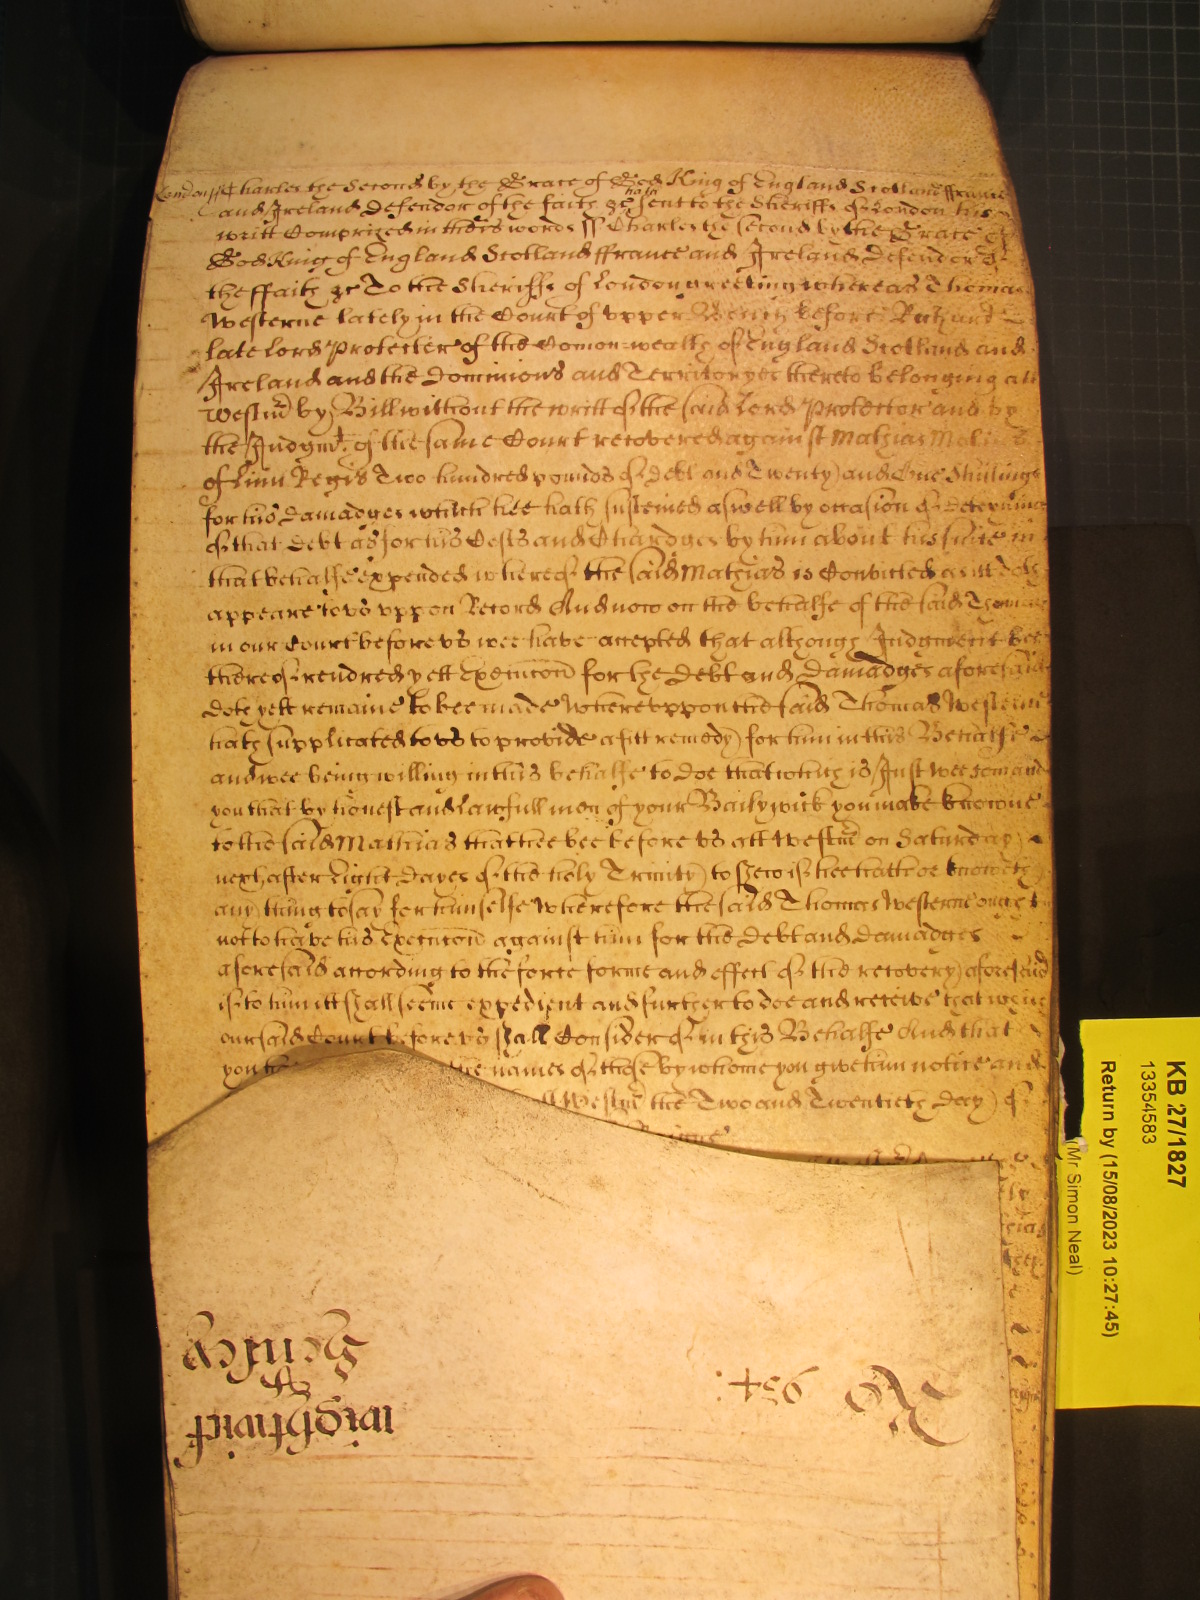 London ss Charles the Second by the Grace of God King of England Scotland ffrance
and Ireland Defendor of the faith &c hath sent to the Sheriffs of London his
writt Comprized in theis words ss Charles the second by the Grace of
God King of England Scotland ffrance and Ireland Defendor of
the ffaith &c To the Sheriffs of London greeting whereas Thomas
Westerne lately in the Court of upper Bench before Richard
late lord Protector of the Comon-wealth of England Scotland and
Ireland and the Dominions and Territoryes thereto belonging att
Westmr by Bill without the writt of the said Lord Protector and by
the Judgmt of the same Court recovered against Mathias
of Linn Regis Two hundred pounds of debt and Twenty and One Shillings
for his Damadges which hee hath susteined aswell by occasion of deteyning
of that debt as for his Costs and Chardges by him about his suite in
that behalfe expended whereof the said Mathias is Convicted as itt doth
appeare to us uppon Record And now on the behalfe of the said Thomas
in our Court before us wee have accepted that although Judgment bee
thereof rendred yett Execucion for the Debt and Damadges aforesaid
doth yett remaine to bee made Whereuppon the said Thomas Westerne
hath supplicated to us to provide a fitt remedy for him in this Behalfe
and wee being willing in this behalfe to doe that which is Just wee comand
you that by honest and lawfull men of your Bailywick you make knowne
to the said Mathias that hee bee before us att Westmr on Saturday
next after Eight Dayes of the holy Trinity to shew if hee hath or knoweth
any thing to say for himselfe Wherefore the said Thomas Westerne ought
not to have his Execucion against him for the Debt and Damadges
aforesaid according to the force forme and effect of the recovery aforesaid
if to him itt shall seeme expedient and further to doe and receive that which
our said Court before us shall Consider of in this Behalfe And that
you the names of those by whome you give him notice and
Westmr the Two and Twentieth Day of
Reigne
Ro 954:
wightwick
&
Henley
KB 27/1827
13354583
Return by (15/08/2023 10:27:45)
(Mr Simon Neal)